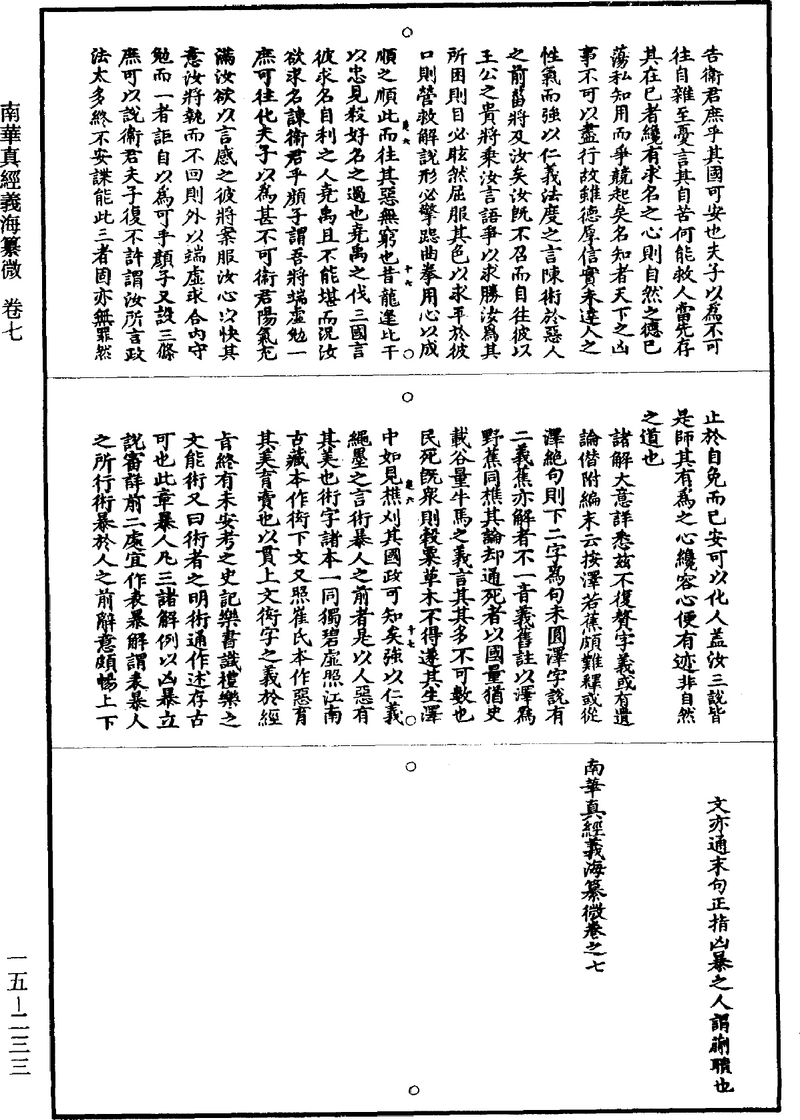 告衛君庶乎其國可安也夫子以為不可
往自雜至憂言其自苦何能救人當先存
其在己者纔有求名之心則自然之德已
蕩私知用而爭競起矣名知者天下之凶
事不可以盡行故雖德厚信實未達人之
性氣而強以仁義法度之言陳術於惡人
之前菑將及汝矣汝既不召而自往彼以
王公之貴將乘汝言語爭以求勝汝為其
所困則目必眩然屈服其色以求平於彼
口則營救解說形必擎跽曲拳用心以成
順之順此而往其惡無窮也昔龍逢比干
以忠見殺好名之過也堯禹之伐三國言
彼求名自利之人堯禹且不能堪而況汝
欲求名諫衛君乎顏子謂吾將端虛勉一
庶可往化夫子以為甚不可衛君陽氣充
滿汝欲以言感之彼將案服汝心以快其
意汝將執而不回則外以端虛求合內守
勉而一者詎自以為可乎顏子又設三條
庶可以說衛君夫子復不許謂汝所言政
法太多終不安諜能此三者固亦無罪然
止於自免而已安可以化人蓋汝三說皆
是師其有為之心纔容心便有迹非自然
之道也
諸解大意詳悉茲不復贅字義或有遺
論偕附編末云按澤若蕉頗難釋或從
澤絕句則下二字為句未圓澤字說有
二義蕉亦解者不一音義舊註以澤為
野蕉同樵其論却通死者以國量猶史
載谷量牛馬之義言其其多不可數也
民死既眾則穀粟草木不得遂其生澤
中如見樵刈其國政可知矣強以仁義
繩墨之言術暴人之前者是以人惡有
其美也術字諸本一同獨碧虛照江南
古藏本作衒下文又照崔氏本作惡育
其美育賣也以貫上文衒字之義於經
旨終有未安考之史記樂書識禮樂之
文能術又曰術者之明術通作述存古
可也此章暴人凡三諸解例以凶暴立
說審詳前二處宜作表暴解謂表暴人
之所行術暴於人之前辭意頗暢上下
文亦通末句正指凶暴之人謂蒯聵也
南華真經義海纂微卷之七
南華真經義海纂微 卷七
一五—二三三